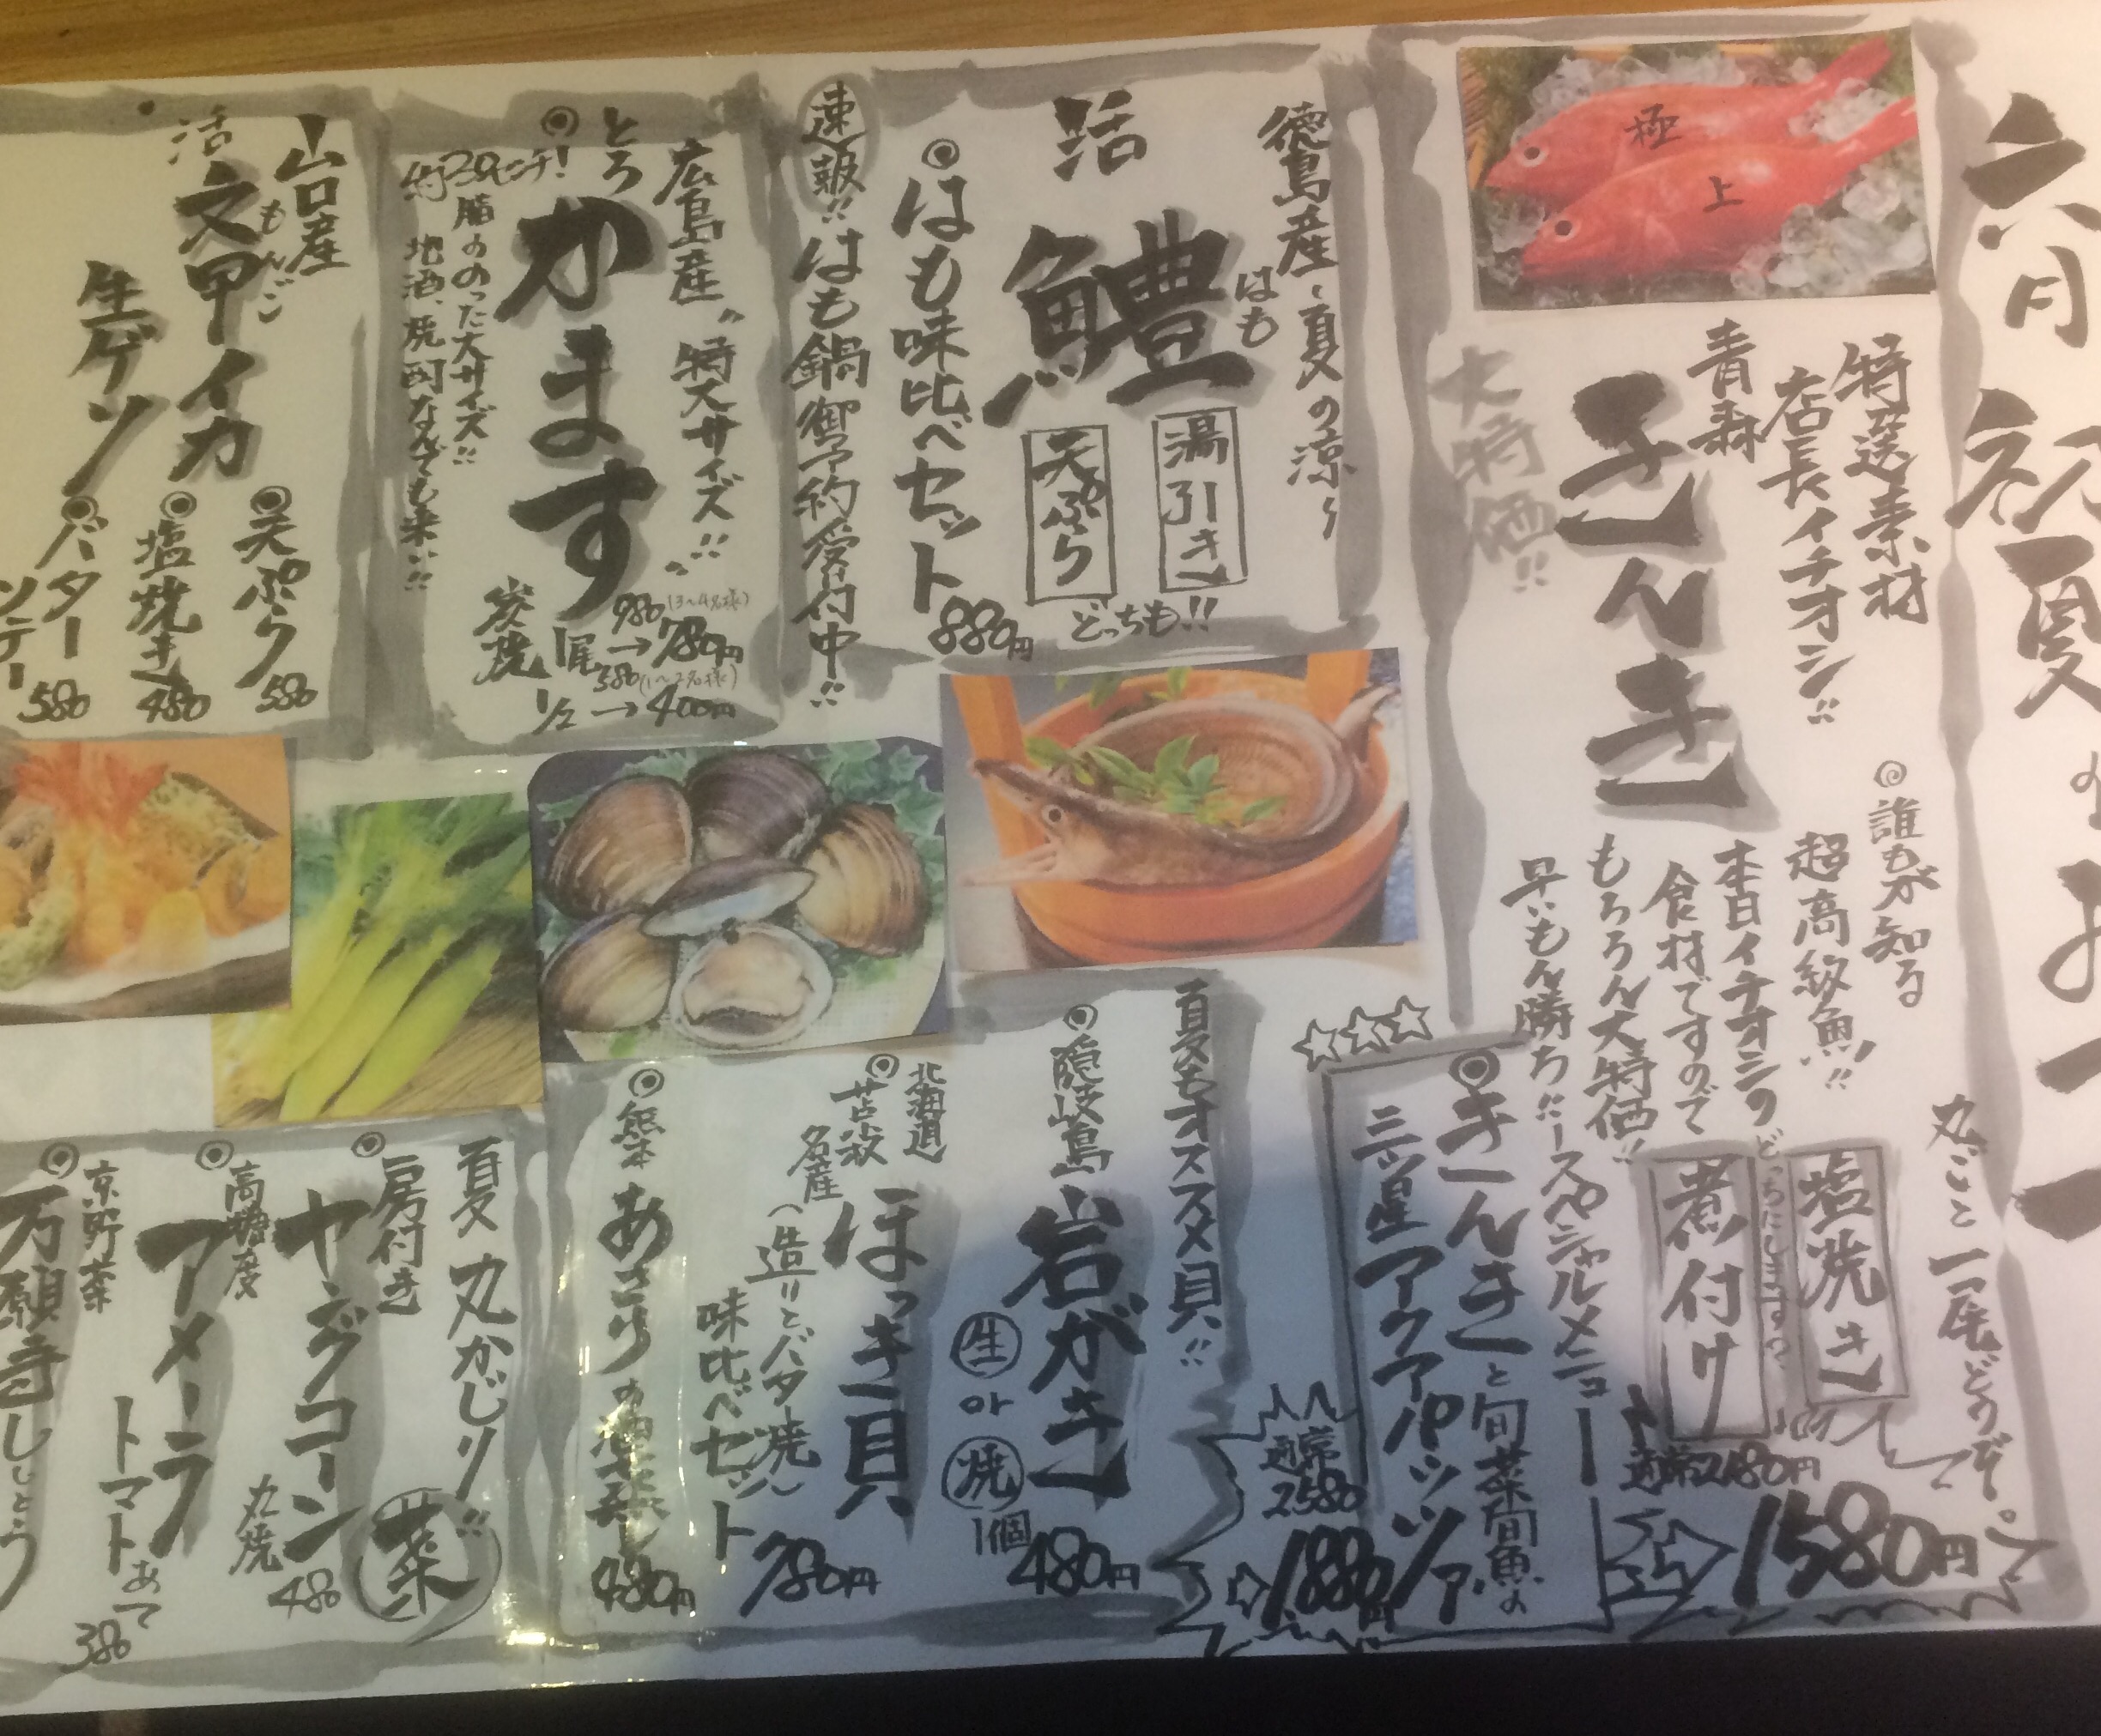 六月初夏の
極
上
特選素材
店長イチオシ!!
青森
きんき
大特価!!
◎誰もが知る
超高級魚!!
本日イチオシの
食材ですので
もちろん大特価!!
早いもん勝ち!!
丸ごと一尾どうぞ。
塩焼き
どっちにしますか?
煮付け
通常2180円
1580円
スペシャルメニュー
☆☆☆
◎きんきと旬菜旬魚の
三ツ星アクアパッツァ
通常
2580
1880円
徳島産~夏の涼~
はも
活鱧
湯引き
天ぷら
どっちも!!
◎はも味比べセット
880円
速報!!はも鍋御予約受付中!!
広島産"特大サイズ!!"
◎とろかます
約30センチ!
脂ののった大サイズ!!
地酒、焼酎なんでも来い!!
炭焼
1尾 980→780円
(3~4名様)
1/2 580→400円
(1~2名様)
山口産
もんご
活文甲イカ
生ゲソ
◎天ぷら
580
◎塩焼き
480
◎バター
ソテー
580
夏もオススメ貝!!
◎隠岐島岩がき
生or焼
1個
480円
北海道
◎苫小牧
名産
ほっき貝
(造りとバター焼)
味比べセット
780円
◎熊本あさりの酒蒸し
480円
夏丸かじり!!
菜
◎房付き
ヤングコーン
丸焼
480
◎高糖度
アメーラ
トマト
380
京野菜
◎万願寺ししとう